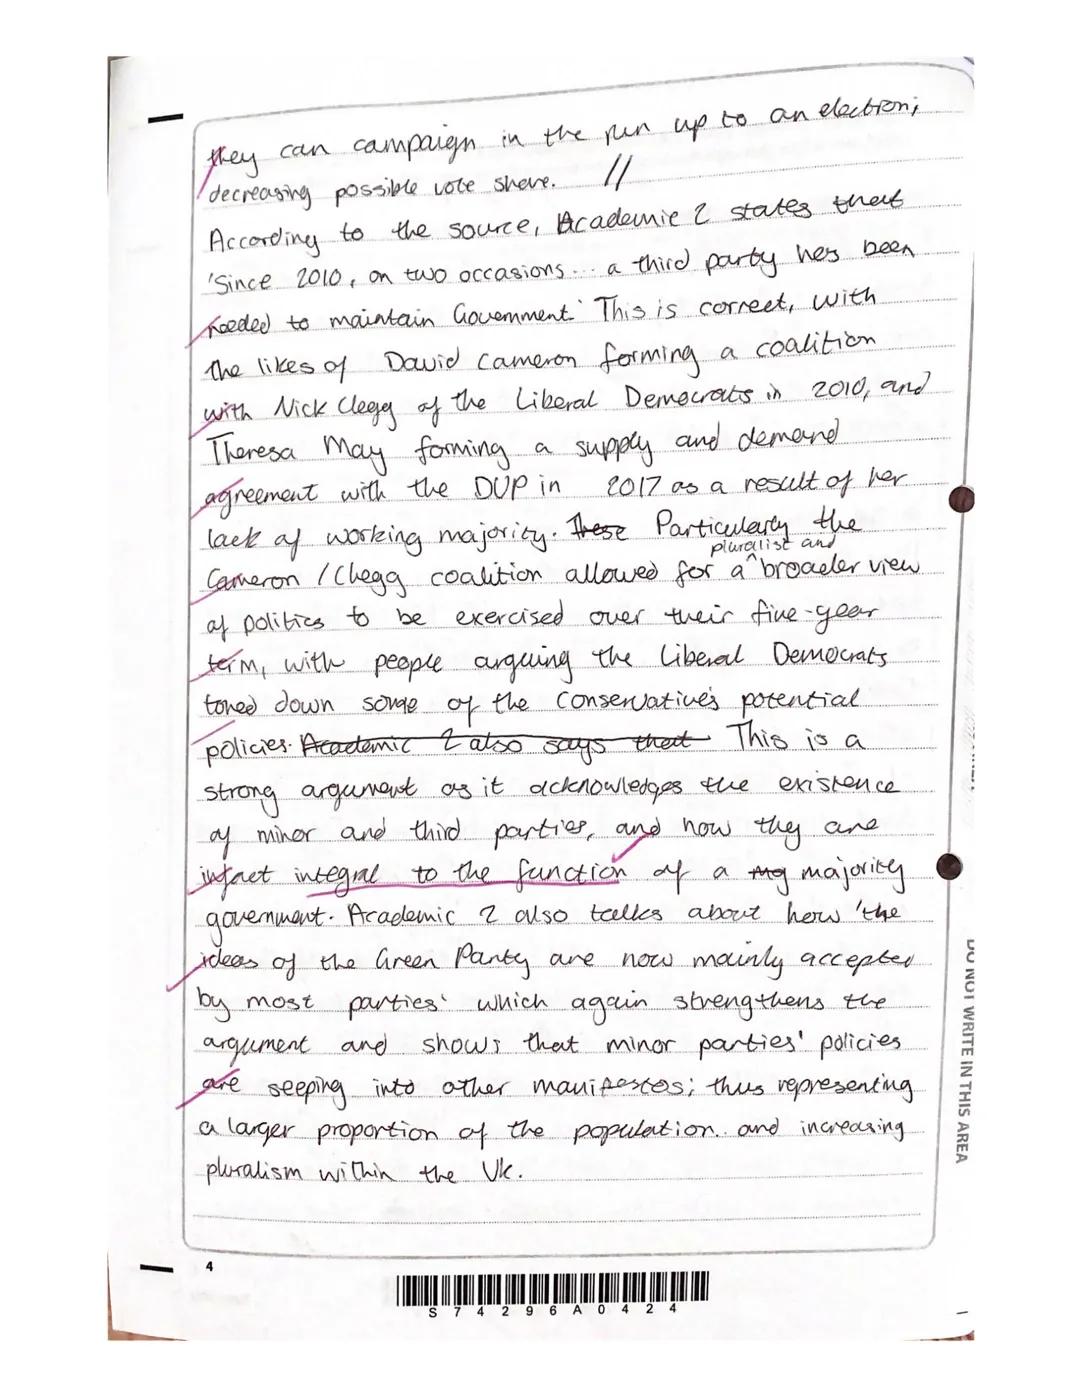 they can campaign in the run up to an election;
decreasing possible vote share. //
According to the source, Academic 2 states that
'Since 2010, on two occasions... a third party has been
needed to maintain Government.' This is correct, with
the likes of David Cameron forming a coalition
with Nick Clegg of the Liberal Democrats in 2010, and
Theresa May forming a supply and demand
agreement with the DUP in 2017 as a result of her
lack of working majority. These Particularly the
pluralist and
Cameron / Clegg coalition allowed for a ^ broader view
of politics to be exercised over their five-year
term, with people arguing the Liberal Democrats
toned down some of the Conservative's potential
policies. Academic 2 also says that This is a
strong argument as it acknowledges the existence
of minor and third parties, and how they are
infact integral to the function of a my majority
government. Academic 2 also talks about how 'the
ideas of the Green Party are now mainly accepted
by most parties' which again strengthens the
argument and shows that minor parties' policies
are seeping into other manifestos; thus representing
a larger proportion of the population. and increasing
pluralism within the UK.
4
S74296A0424
DO NOT WRITE IN THIS AREA